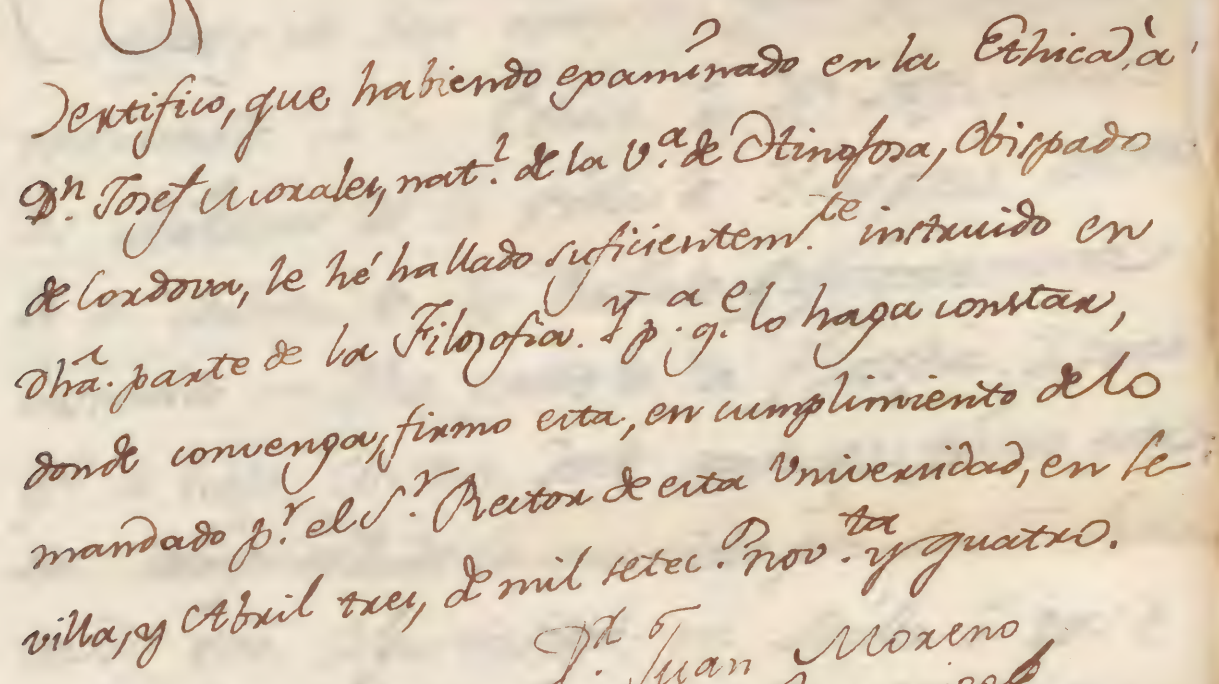 Certifico, que habiendo examinado en la Ethica, à
Dn. Josef Morales, natl. de la Va. de Hinojosa, Obispado
de Cordova, le hé hallado suficientemte. instruido en
dha. parte de la Filozofia. Y pa. qe. lo haga constar,
donde convenga, firmo esta, en cumplimiento de lo
mandado pr. el Sr. Rector de esta Universidad, en Se-
villa, y Abril tres, de mil setecs. novta. y quatro.
Juan Moreno